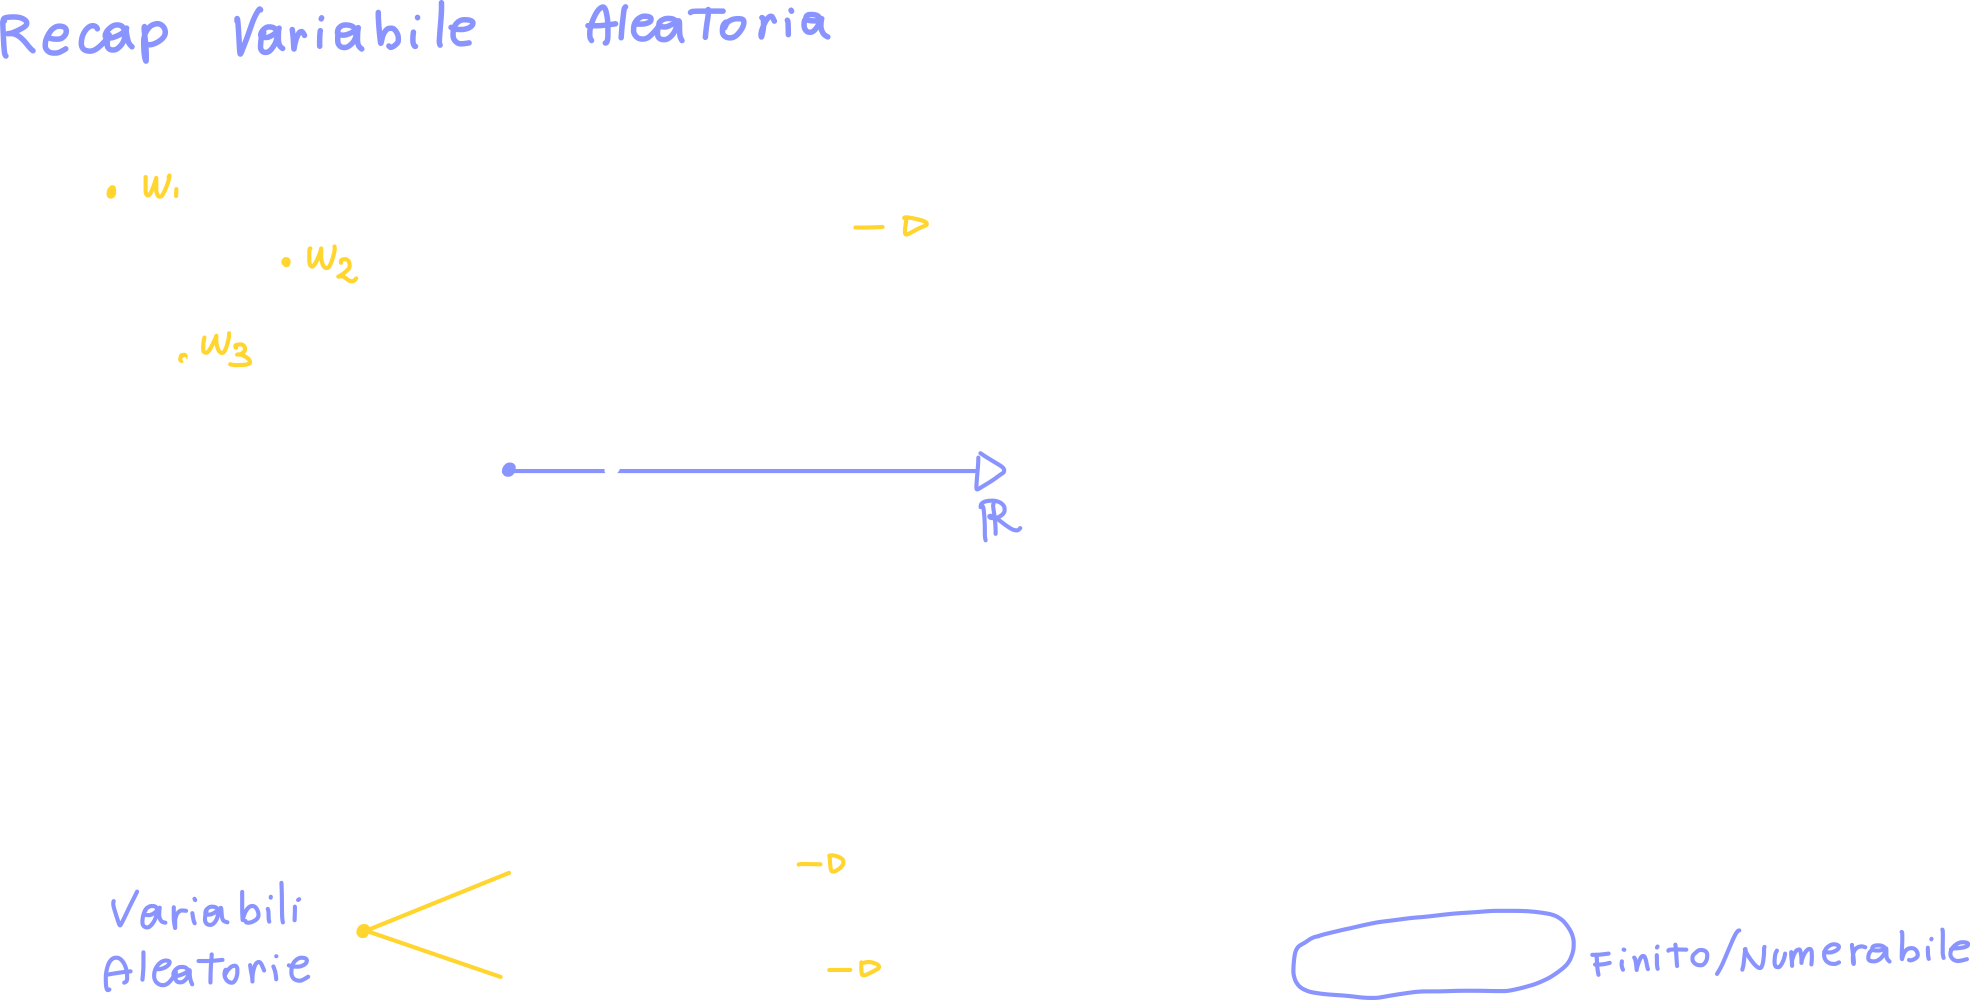 Recap Variabile Aleatoria
w1
w2
w3
ℝ
Variabili
Aleatorie
Finito/Numerabile